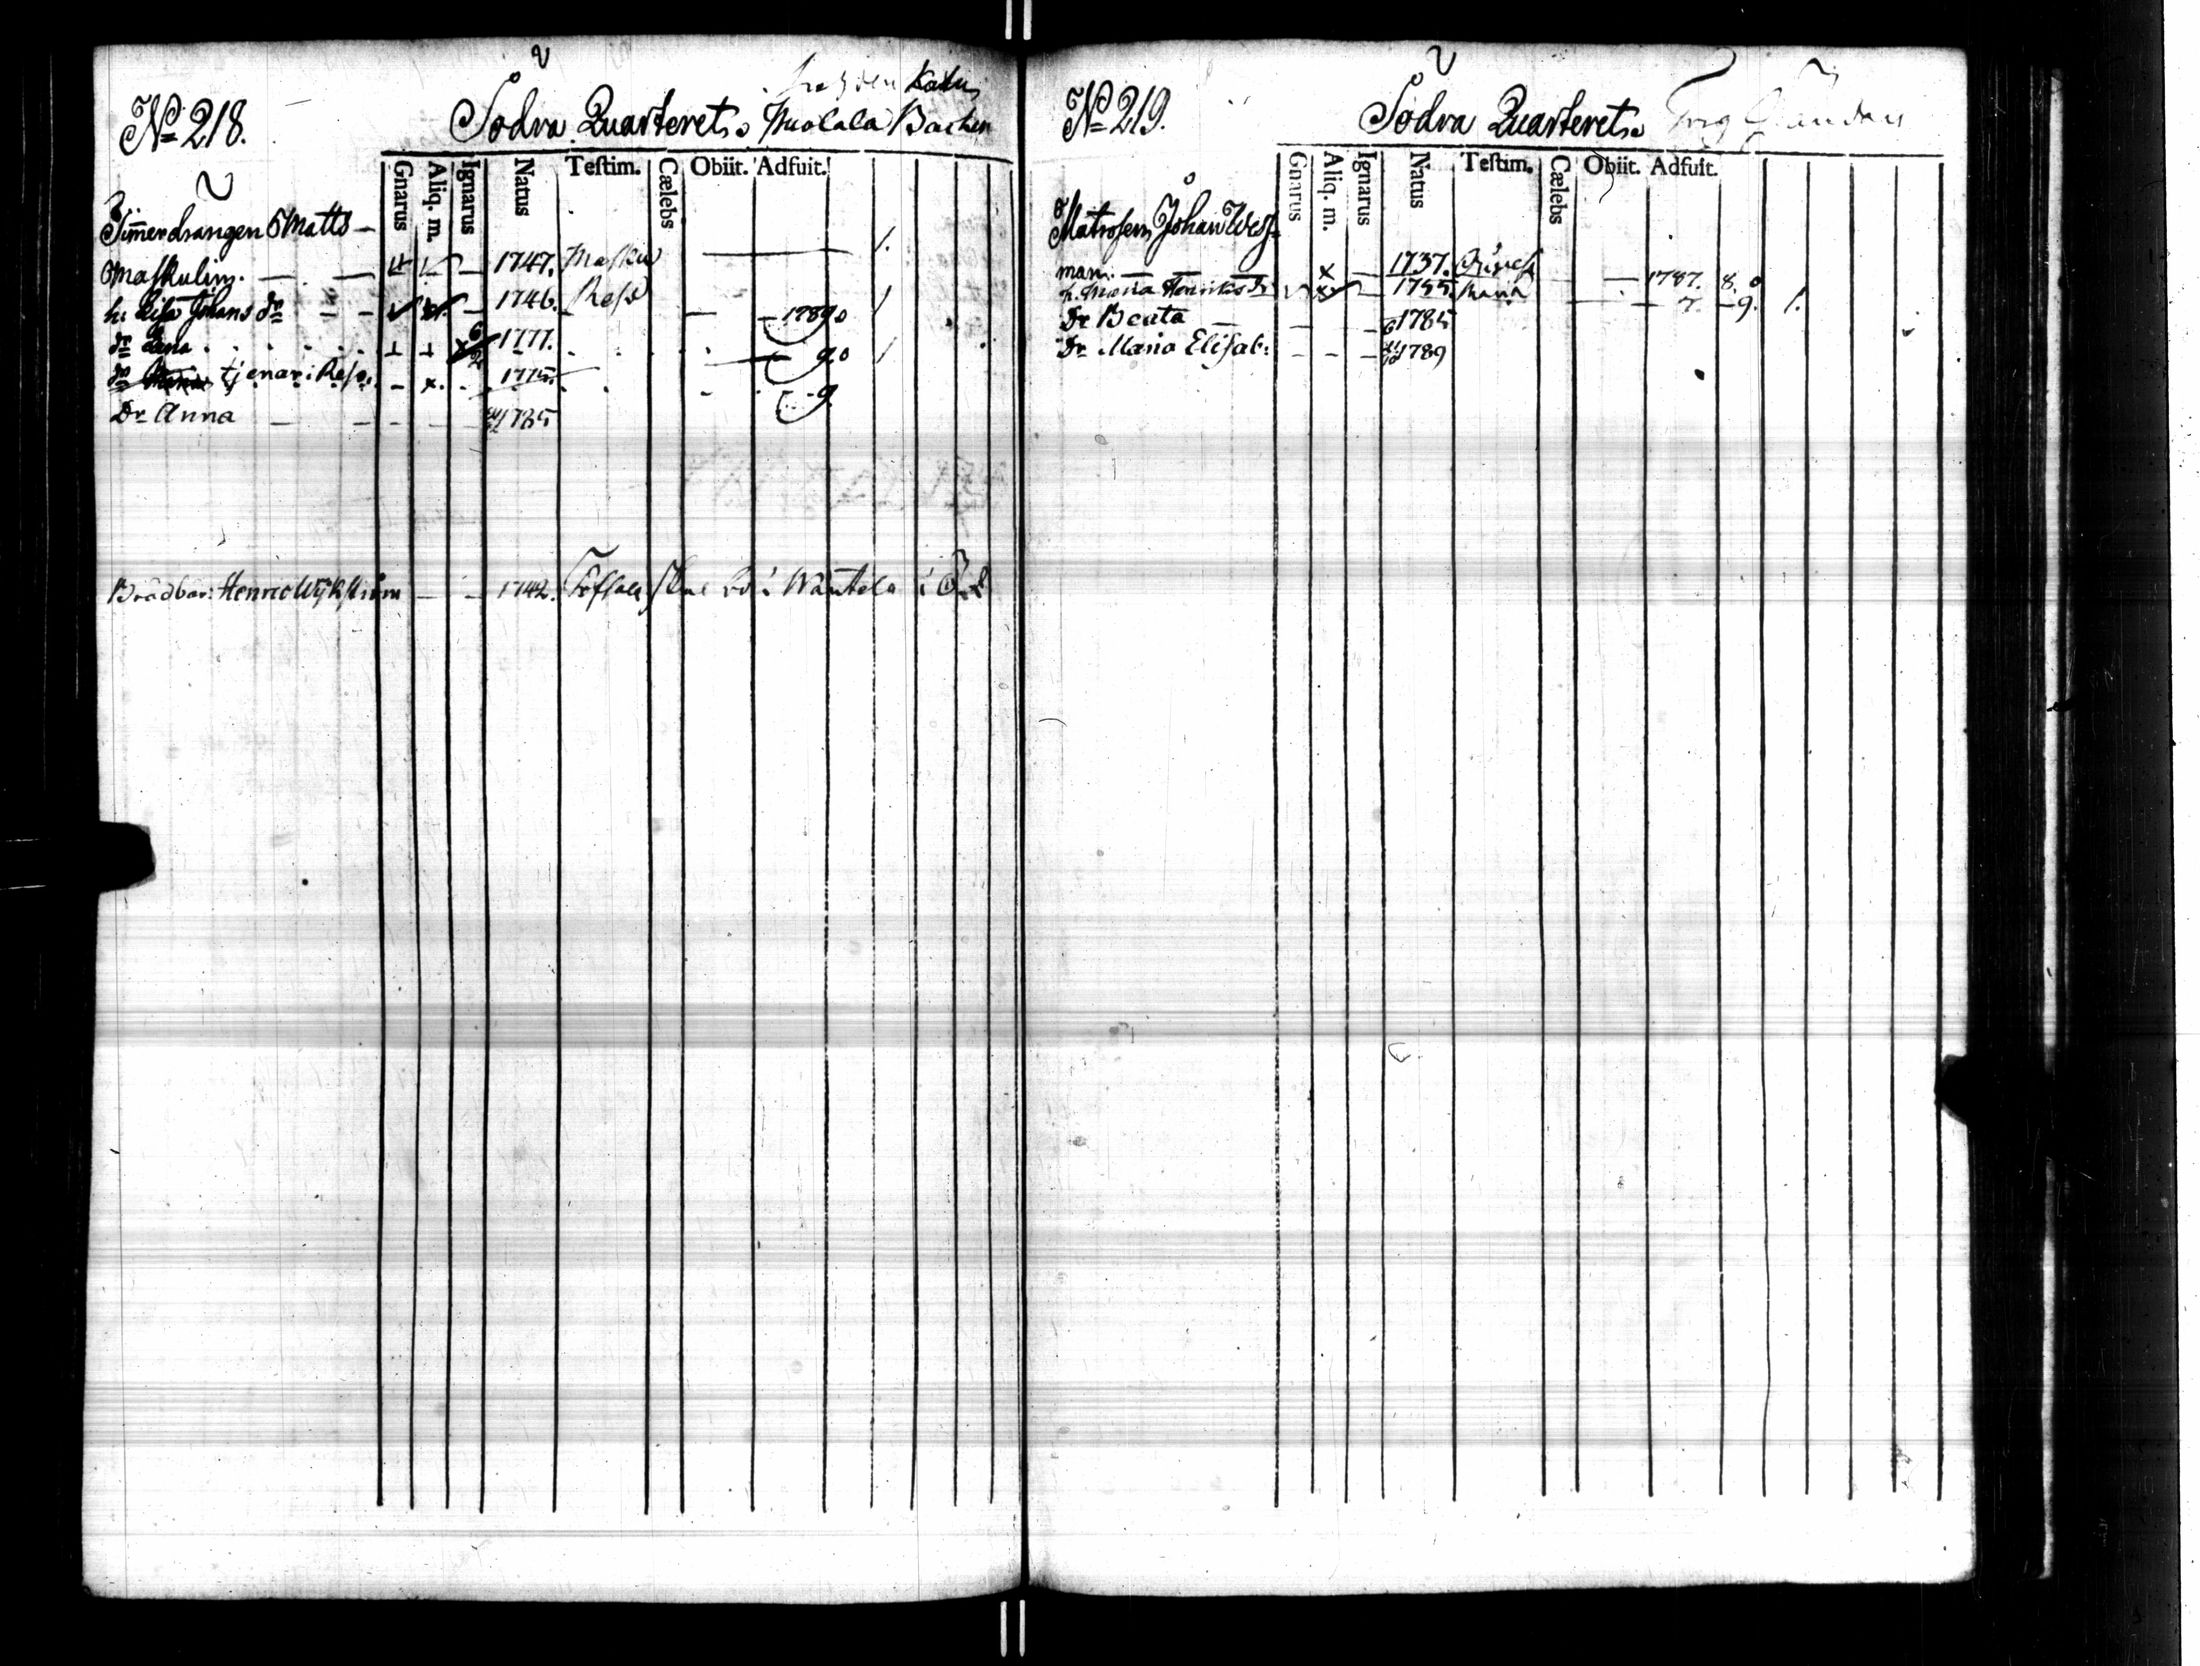 Katu
No 218. Södra Quarteret. Muolala Backen
Gnarus Aliq. m. Ignarus Natus Testim. Cælebs Obiit. Adfuit.
Timerdrängen Matts —
Maskulin. — — 1747. Masku 1.
h. Lisa Johans dr — — 1746. Reso — 1789. 1
dr Lena 1777. — 90 1
dr tjenar i Reso. 1775. 9.
Dr Anna — — 1785
Brädbär: Henric Wijkström — — 1742. i Wäntelä i
No 219. Södra Quarteret.
Gnarus Aliq. m. Ignarus Natus Testim. Cælebs Obiit. Adfuit.
Matrosen Johan West-
man. — — x — 1737. — 1787. 8.
h. Maria Henriks dr 1755. Maria — 7. — 9. 1.
Dr Beata — 1785
Dr Maria Elisab: — — — 1789